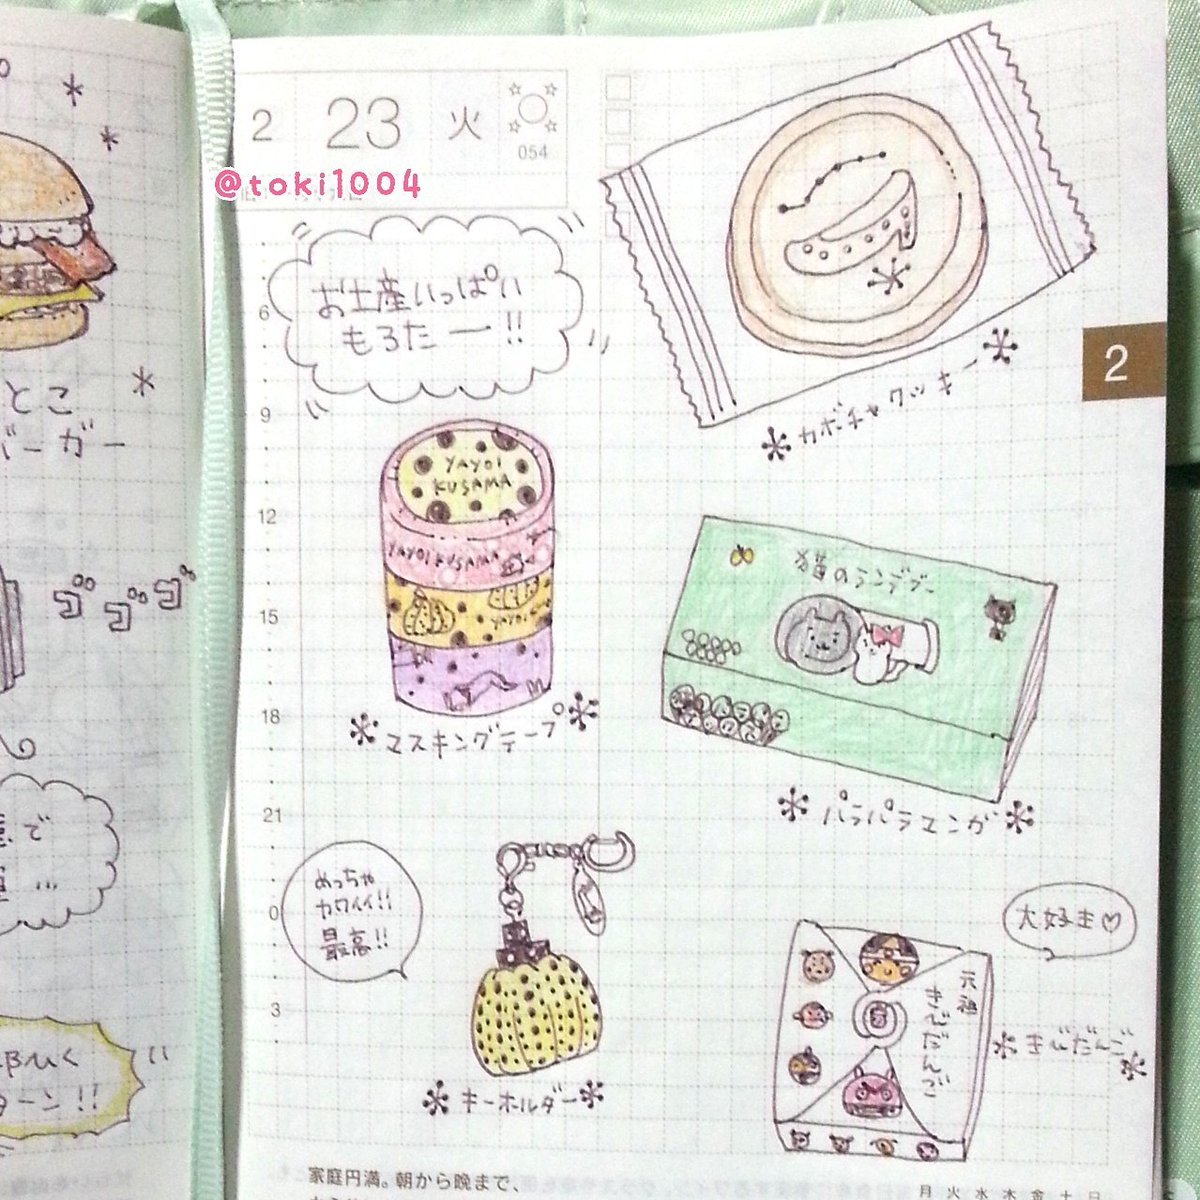 とこ
バーガー
2 23 火
054
@toki1004
お土産いっぱい
もろたー!!
6
9
12
15
18
21
0
3
カボチャクッキー
2
YAYOI
KUSAMA
YAYOI KUSAMA
YAYOI
マスキングテープ
ゴゴゴ
猫のランデブー
パラパラマンガ
で
めっちゃ
カワイイ!!
最高!!
キーホルダー
大好き♡
元祖
きびだんご
きびだんご
ターン!!
家庭円満。朝から晩まで、
月火水木金土日